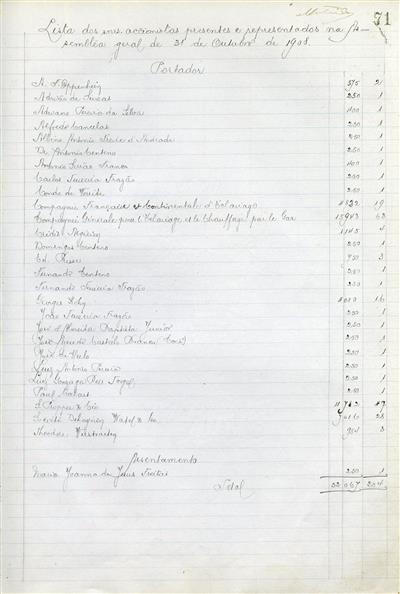 71
Lista dos snrs. accionistas presentes e representados na As-
semblea geral de 31 de Outubro de 1908.
Portador
A. S. Oppenheim 575 21
Adrião de Seixas 250 1
Adriano Pereira da Silva 400 1
Alfredo Cancellas 250 1
Albino Antonio Freire d'Andrade 250 1
Dr. Antonio Centeno 250 1
Antonio Simão Franca 400 1
Carlos Ferreira Fragão 250 1
Conde de 250 1
Compagnie Française et Continentale d'Éclairage 4832 19
Compagnie Générale pour l'Éclairage et le Chauffage par le Gaz 15943 63
1145 4
Domingos Centeno 250 1
Ed. 750 3
Fernando Centeno 250 1
Fernando Ferreira Fragão 250 1
George 4010 16
João Ferreira Fragão 250 1
José d'Almeida Baptista Junior 250 1
José Castello Branco 250 1
José de Mello 250 1
Luiz Antonio Pereira 250 1
Luiz Gonzaga Reis Torgal 250 1
Paul 250 1
S. Propper & Cie 11,743 47
7016 28
Theodore Verstraeten 954 3
Assentamento
Maria Joanna de Jesus Freitas 250 1
Total 224